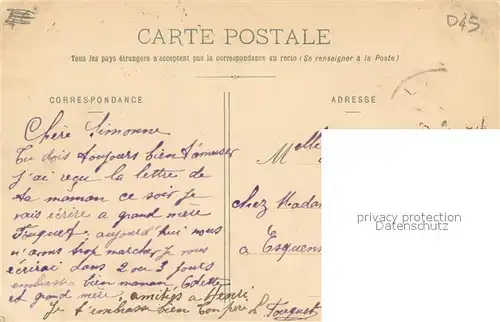 D45
CARTE POSTALE
Tous les pays étrangers n'acceptent pas la correspondance au recto (Se renseigner à la Poste)
CORRESPONDANCE
ADRESSE
Chère Simonne
Tu dois toujours bien t'amuser
j'ai reçu la lettre de
ta maman ce soir je
vais écrire a grand mère
Fouquet, aujourd'hui nous
n'avons trop marcher je vous
écrirai dans 2 ou 3 jours
embrasse bien maman Odette
et grand mère, amitiés a Henri
Je t'embrasse bien Ton père L. Fouquet
Melle
chez Madam
a Esquen
privacy protection
Datenschutz